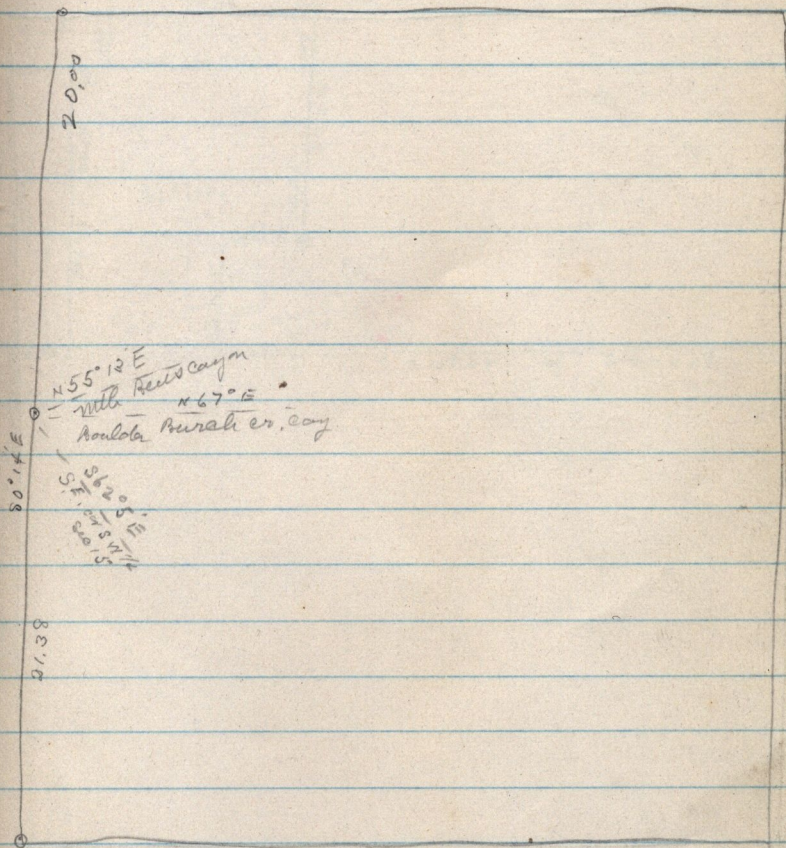 20.00
N55°12'E
Mth canyon
N67°E
Boulder Burch cr. cay
S0°14'E
S62°5'E
S.E. cor SW 1/4
sec 15
21.38